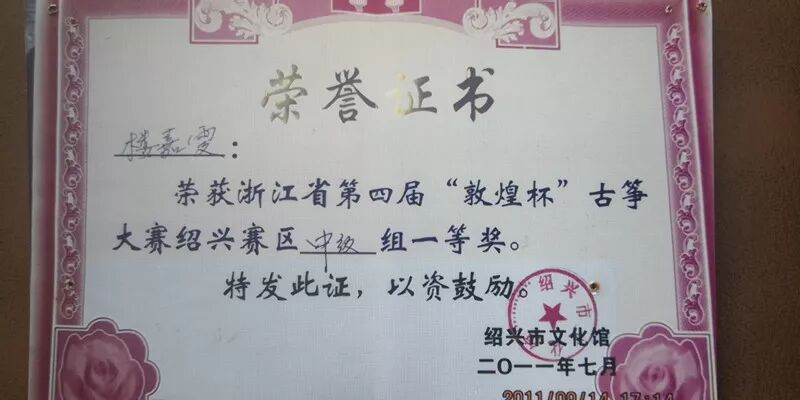 荣誉证书
楼嘉雯：
荣获浙江省第四届“敦煌杯”古筝
大赛绍兴赛区中级组一等奖。
特发此证，以资鼓励。
绍兴市
绍兴市文化馆
二〇一一年七月
2011/09/14 17:14